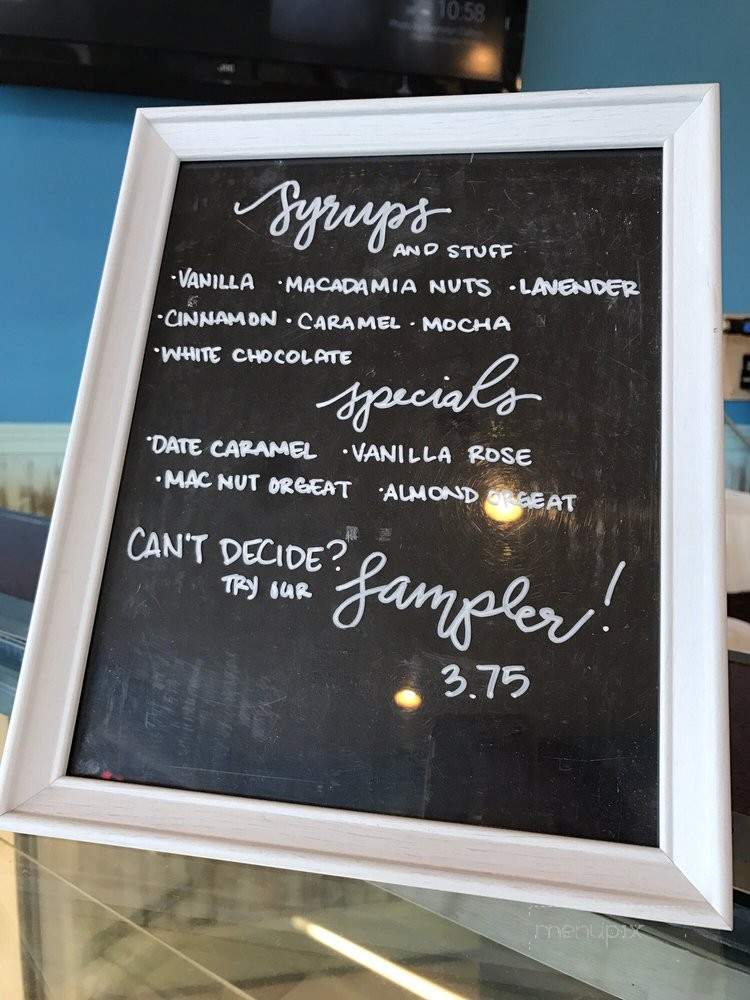 10:58
JVC
Syrups
AND STUFF
·VANILLA ·MACADAMIA NUTS ·LAVENDER
·CINNAMON ·CARAMEL ·MOCHA
·WHITE CHOCOLATE
specials
·DATE CARAMEL ·VANILLA ROSE
·MAC NUT ORGEAT ·ALMOND ORGEAT
CAN'T DECIDE?
TRY OUR Sampler!
3.75
menupix